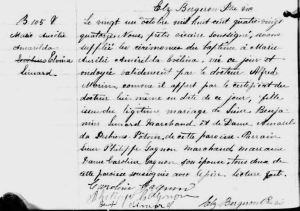 Elz Bergeron Ptre
B 108
Marie Aurélie
Amarilda
Simard
Le vingt un octobre mil huit cent quatre vingt
quatorze Nous prêtre soussigné, avons
suppléé les cérémonies du baptême à Marie
Aurélie Amarilda Evelina, née ce jour et
ondoyée validement par le docteur Alfred
Morin, comme il appert par le certificat du
docteur lui même en date de ce jour, fille
issue du légitime mariage de Sieur
Simard Marchand, et de Dame
de cette paroisse. Parrain
Sieur Philippe Gagnon marchand marraine
Dame Caroline Gagnon son épouse, tous deux de
cette paroisse soussignés avec le père. Lecture faite.
Caroline Gagnon
Philippe Gagnon
Simard Elz Bergeron Ptre